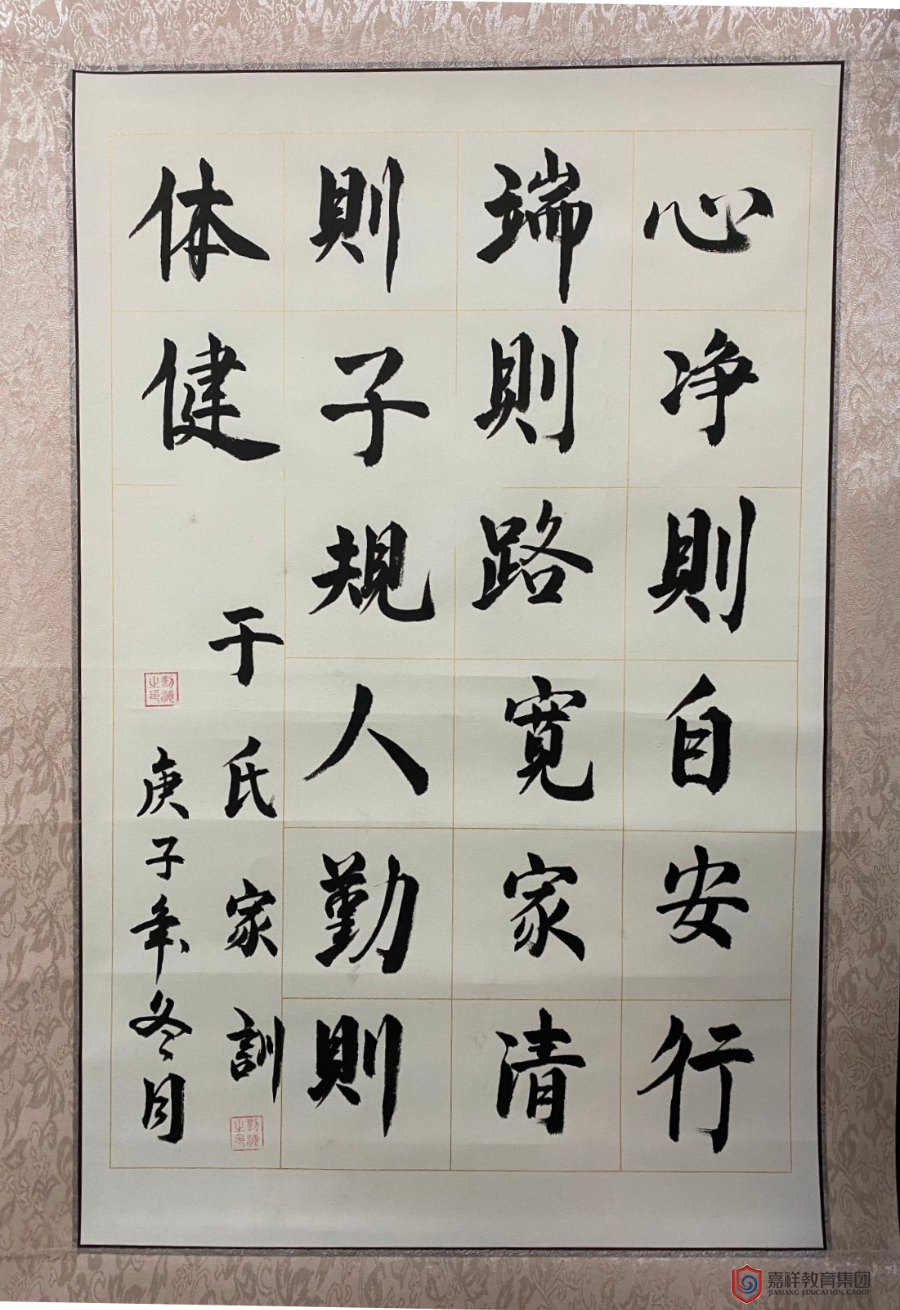 心净則自安行
端則路寬家清
則子規人勤則
体健
于氏家訓
庚子年冬月
嘉祥教育集团
JIAXIANG EDUCATION GROUP